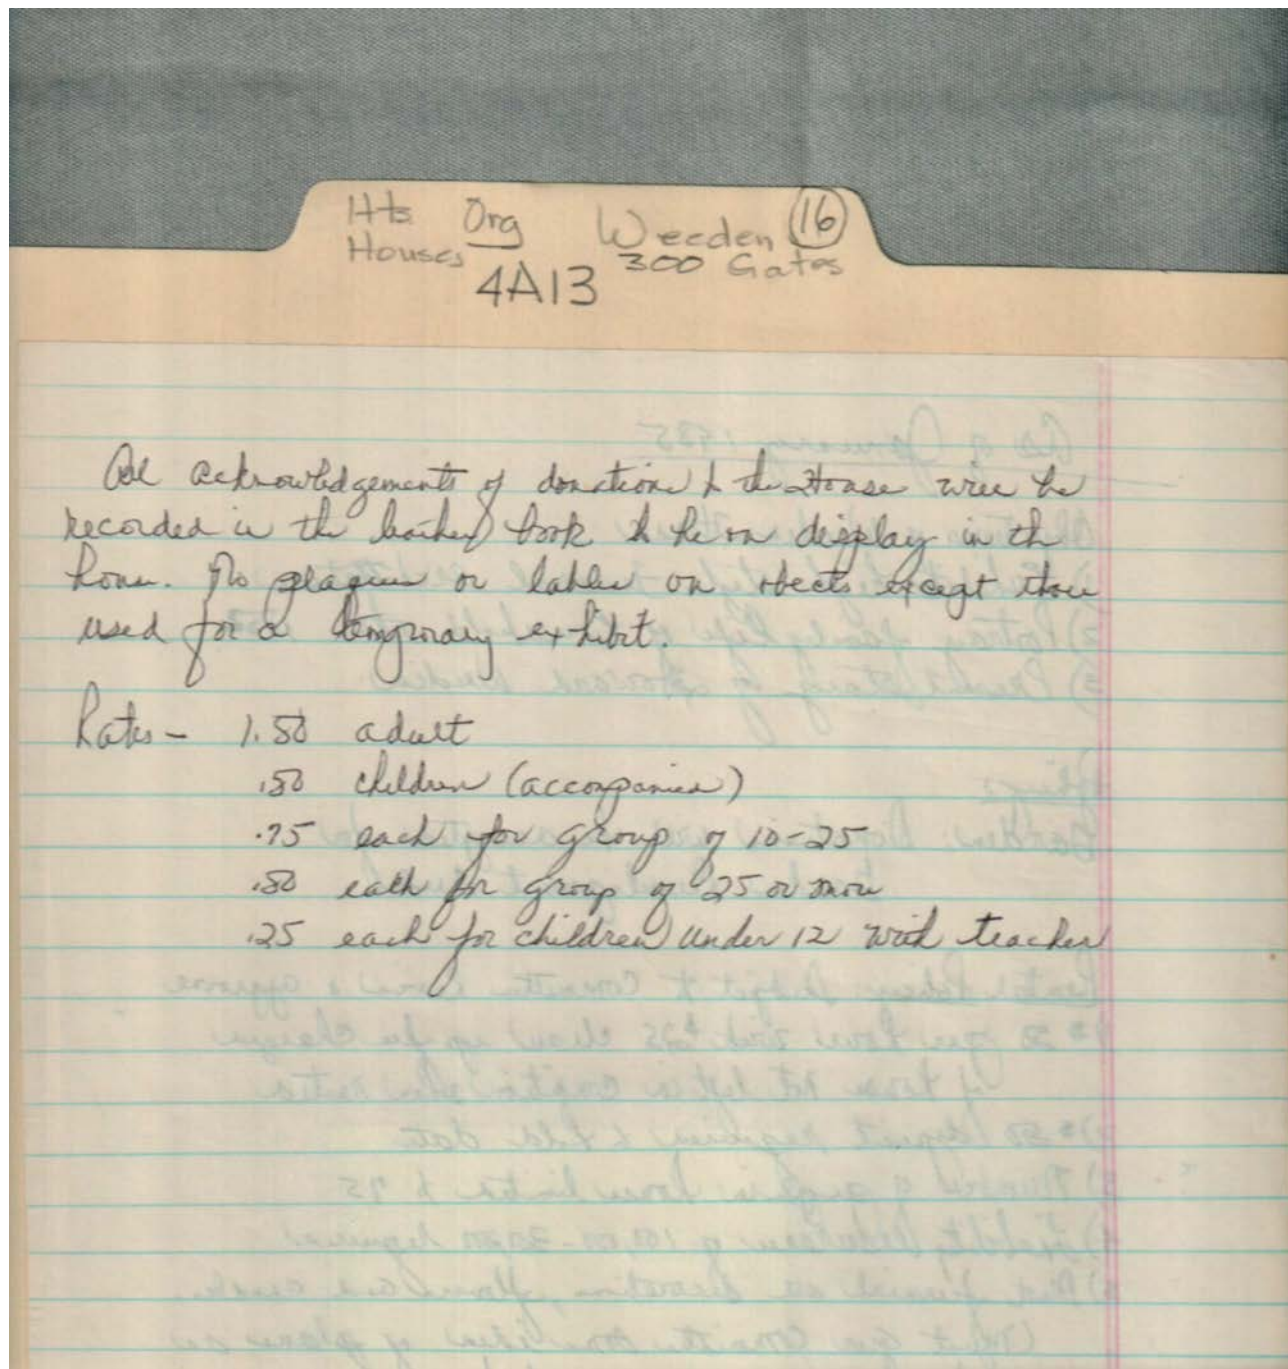 Hts Org Weeden 16
Houses 300 Gates
4A13
All acknowledgements of donations to the House will be
recorded in the leather book to be on display in the
home. No plaques or lables on obects except those
used for a temporary exhibit.
Rates - 1.50 adult
.50 children (accompanied)
.75 each for group of 10-25
.50 each for group of 25 or more
.25 each for children under 12 with teacher